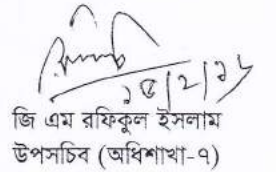 ১৫/২/১৬
জি এম রফিকুল ইসলাম
উপসচিব (অধিশাখা-৭)